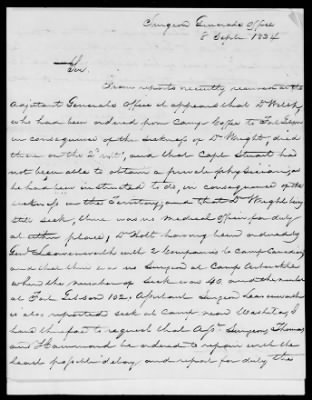 Surgeon Generals Office
8 Septr. 1834
Sir.
From reports recently received at the
Adjutant Generals Office it appears that Dr
who had been ordered from Camp to Fort Gibson
in consequence of the sickness of Dr Wright, died
there on the 2d and that Capt Stuart had
not been able to obtain a private physician, as
he had been instructed to do, in consequence of the
sickness in the Territory, and that Dr Wright being
still sick, there was no Medical Officer for duty
at either place, Dr Holt having been ordered by
Genl Leavenworth with 2 Companies to Camp Canadian
and that there was no Surgeon at Camp Arbuckle
where the number of sick was 40. and the number
at Fort Gibson 102. Assistant Surgeon
is also reported sick at Camp near Washita, I
have therefore to request that Asst. Surgeons Thomas
and Hammond be ordered to repair with the
least possible delay, and report for duty the